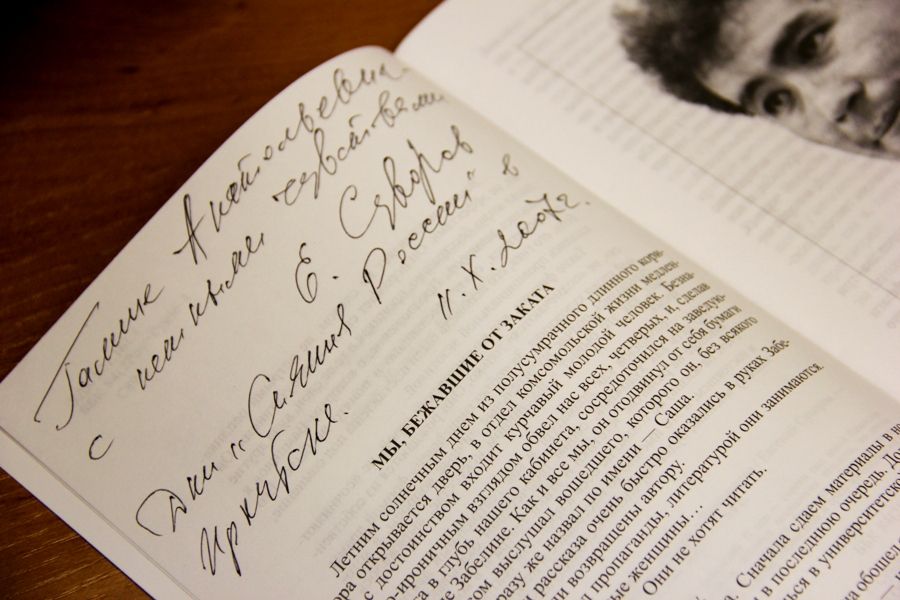 Галине Анатольевне
с чувствами
Е. Суворов
Дни "Сияния России" в
Иркутске.
11.X.2007г.
МЫ, БЕЖАВШИЕ ОТ ЗАКАТА
Летним солнечным днем из полусумрачного длинного кори-
ра открывается дверь, в отдел комсомольской жизни медлен-
с достоинством входит курчавый молодой человек. Безна-
о-ироничным взглядом обвел нас всех, четверых, и, сделав
а в глубь нашего кабинета, сосредоточился на заведую-
е Забелине. Как и все мы, он отодвинул от себя бумаги
ом выслушал вошедшего, которого он, без всякого
разу же назвал по имени — Саша.
и рассказа очень быстро оказались в руках Забе-
ли возвращены автору.
л пропаганды, литературой они занимаются.
ые женщины…
Они не хотят читать.
Сначала сдаем материалы в
в последнюю очередь.
в университетско
обошел